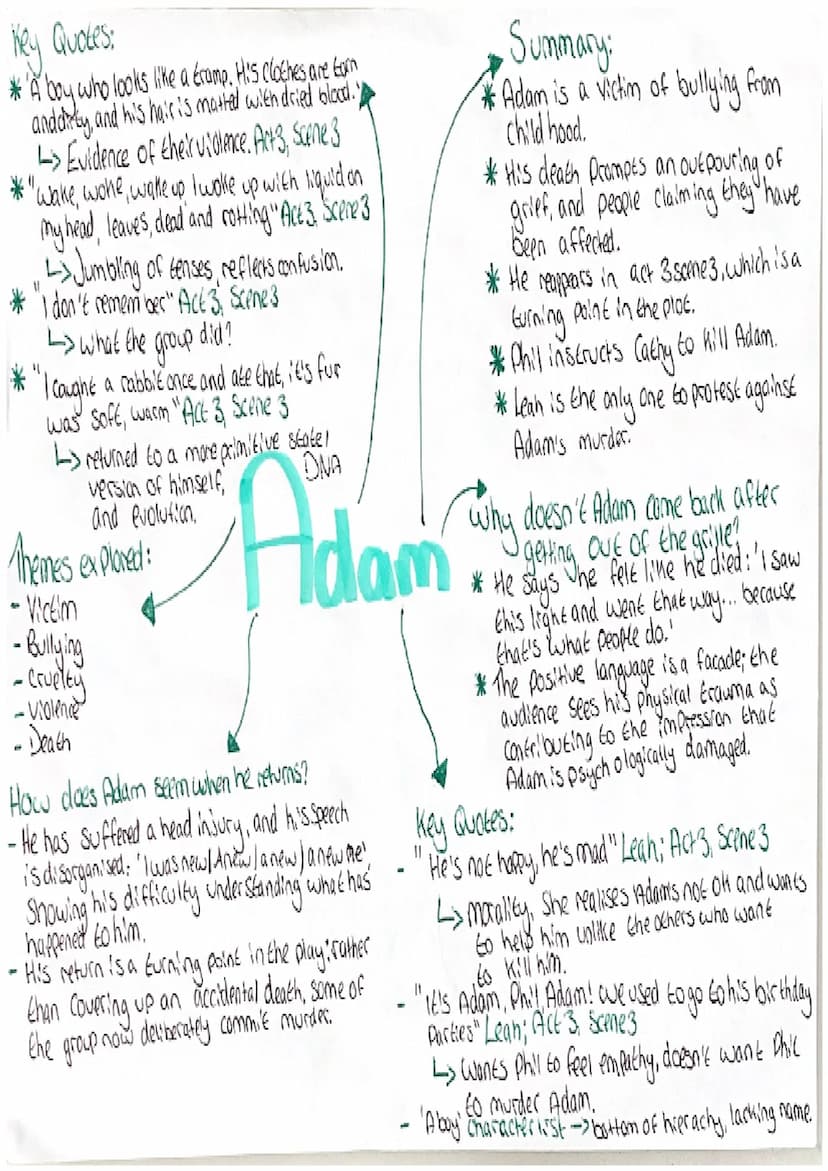 Key Quotes:
* 'A boy who looks like a tramp. His clothes are torn
and dirty, and his hair is matted with dried blood.'
↳ Evidence of their violence. Act 3, Scene 3
* "Wake, woke, wake up I woke up with liquid on
my head, leaves, dead and rotting" Act 3, Scene 3
↳ Jumbling of tenses, reflects confusion.
* "I don't remember" Act 3, Scene 3
↳ What the group did?
* "I caught a rabbit once and ate that, it's fur
was soft, warm" Act 3, Scene 3
↳ returned to a more primitive state/
version of himself, DNA
and evolution.
Themes explored:
- Victim
- Bullying
- Cruelty
- Violence
- Death
How does Adam seem when he returns?
- He has suffered a head injury, and his speech
is disorganised: 'I was new/Anew/a new/a new me'
Showing his difficulty understanding what has
happened to him.
- His return is a turning point in the play: rather
than covering up an accidental death, some of
the group now deliberately commit murder.
Adam
Summary:
* Adam is a victim of bullying from
childhood.
* His death prompts an outpouring of
grief, and people claiming they have
been affected.
* He reappears in act 3 scene 3, which is a
turning point in the plot.
* Phil instructs Cathy to kill Adam.
* Leah is the only one to protest against
Adam's murder.
Why doesn't Adam come back after
getting out of the grille?
* He says he felt like he died: 'I saw
this light and went that way... because
that's what people do.'
* The positive language is a facade; the
audience sees his physical trauma as
contributing to the impression that
Adam is psychologically damaged.
Key Quotes:
- "He's not happy, he's mad" Leah; Act 3, Scene 3
↳ Morality, She realises Adams not ok and wants
to help him unlike the others who want
to kill him.
- "It's Adam, Phil, Adam! We used to go to his birthday
Parties" Leah; Act 3, Scene 3
↳ Wants Phil to feel empathy, doesn't want Phil
to murder Adam.
- 'A boy' character list → bottom of hierachy, lacking name.